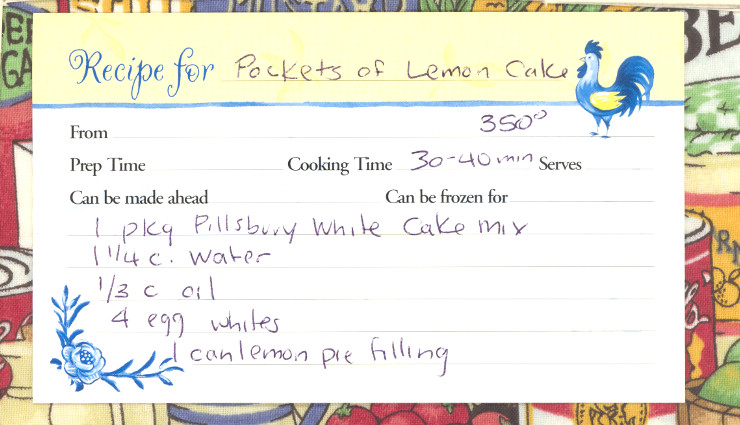 Recipe for Pockets of Lemon Cake
From 350°
Prep Time Cooking Time 30-40 min Serves
Can be made ahead Can be frozen for
1 pkg Pillsbury White Cake mix
1 1/4 c. water
1/3 c oil
4 egg whites
1 can lemon pie filling